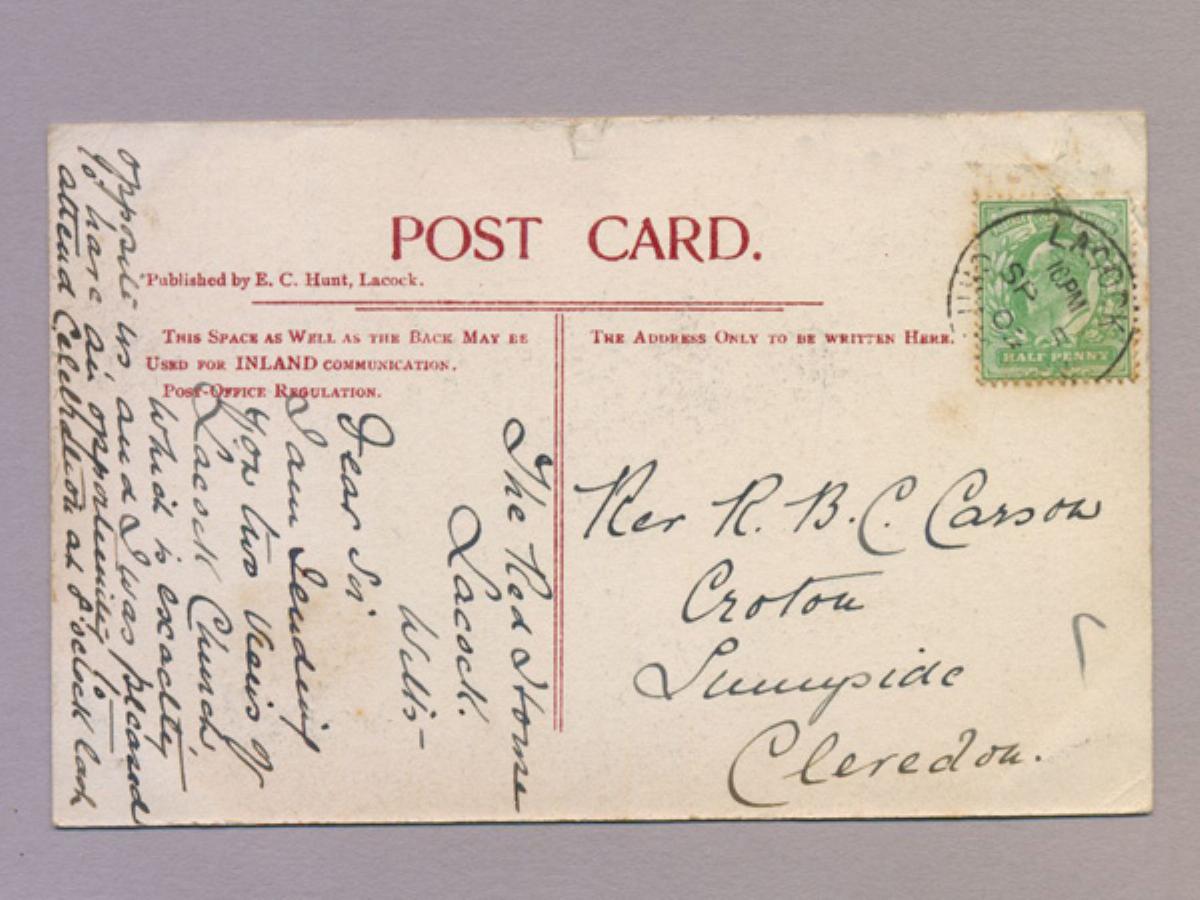 POST CARD.
Published by E. C. Hunt, Lacock.
THIS SPACE AS WELL AS THE BACK MAY BE
USED FOR INLAND COMMUNICATION.
POST-OFFICE REGULATION.
THE ADDRESS ONLY TO BE WRITTEN HERE.
LACOCK
10 PM
SP 5
HALF PENNY
The Red House
Lacock.
Wilts-
Dear Sir
I am sending
you two views of
Lacock Church
which is exactly
opposite us and I was pleased
to have an opportunity to
attend Celebration at 8 o'clock each
Rev R. B. C. Carson
Croton
Sunnyside
Clevedon.